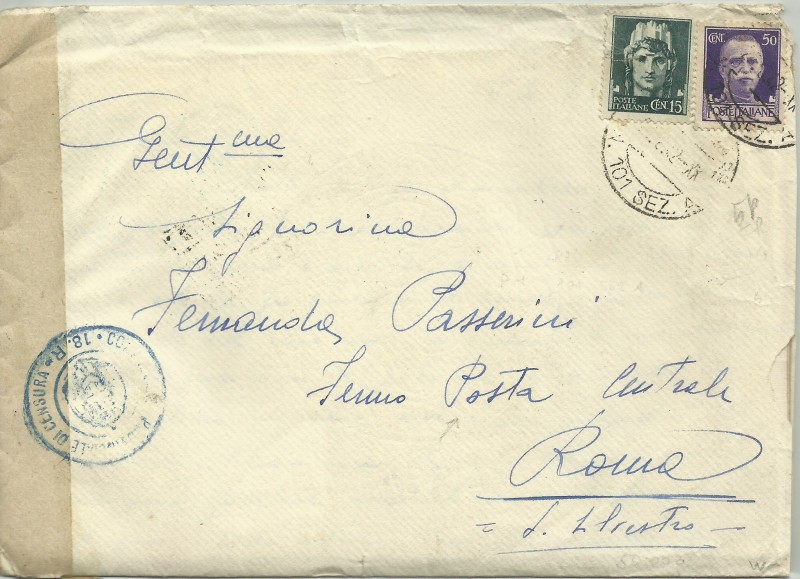 POSTE ITALIANE CEN. 15
CENT. 50
POSTE ITALIANE
SEZ. A
101 SEZ. A
Gent ma
Signorina
Fernanda Passerini
Fermo Posta Centrale
Roma
= S. Silvestro =
PROVINCIALE DI CENSURA • 18. R •